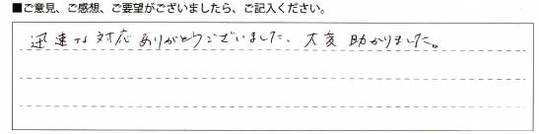 ■ご意見、ご感想、ご要望がございましたら、ご記入ください。
迅速な対応ありがとうございました、大変助かりました。